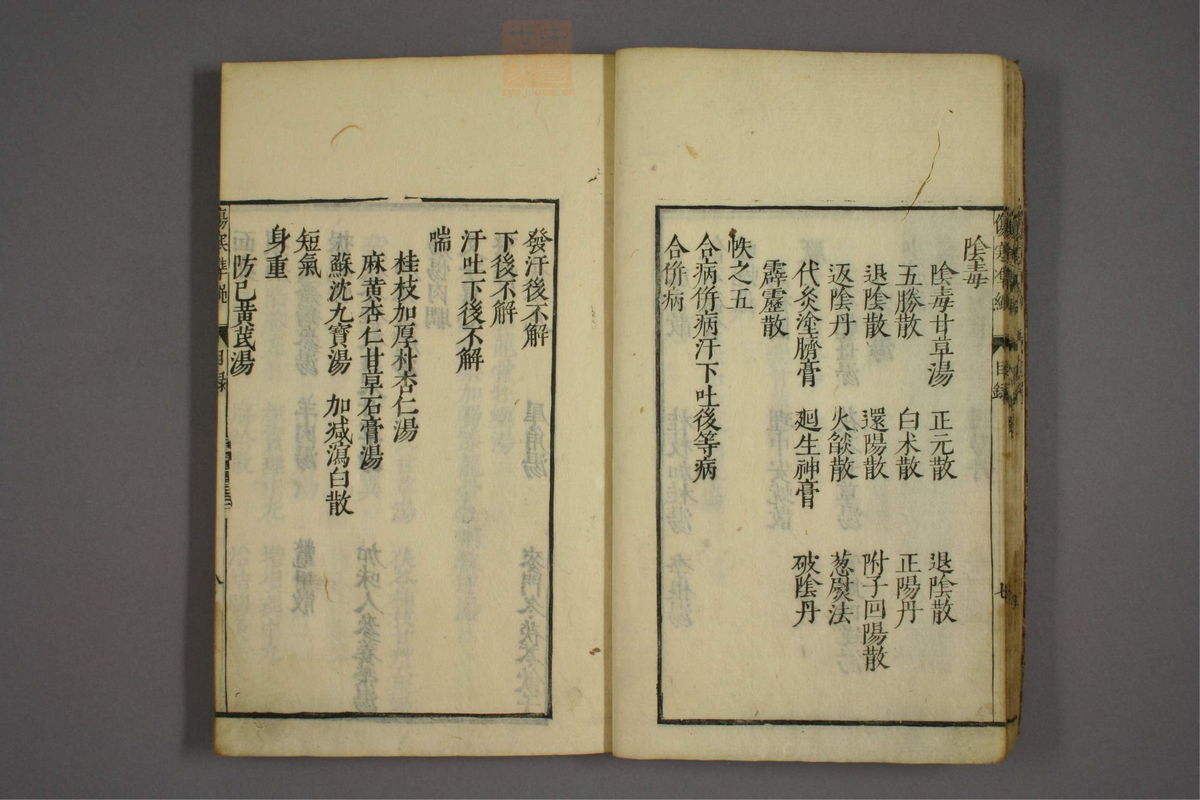 陰毒
陰毒甘草湯　正元散　退陰散
五勝散　白朮散　正陽丹
退陰散　還陽散　附子回陽散
返陰丹　火燄散　葱熨法
代灸塗臍膏　廻生神膏　破陰丹
霹靂散
帙之五
合病併病汗下吐後等病
合併病
發汗後不解
下後不解
汗吐下後不解
喘
桂枝加厚朴杏仁湯
麻黄杏仁甘草石膏湯
蘇沈九寶湯　加减瀉白散
短氣
身重
防己黄芪湯
傷寒準繩　目録　八